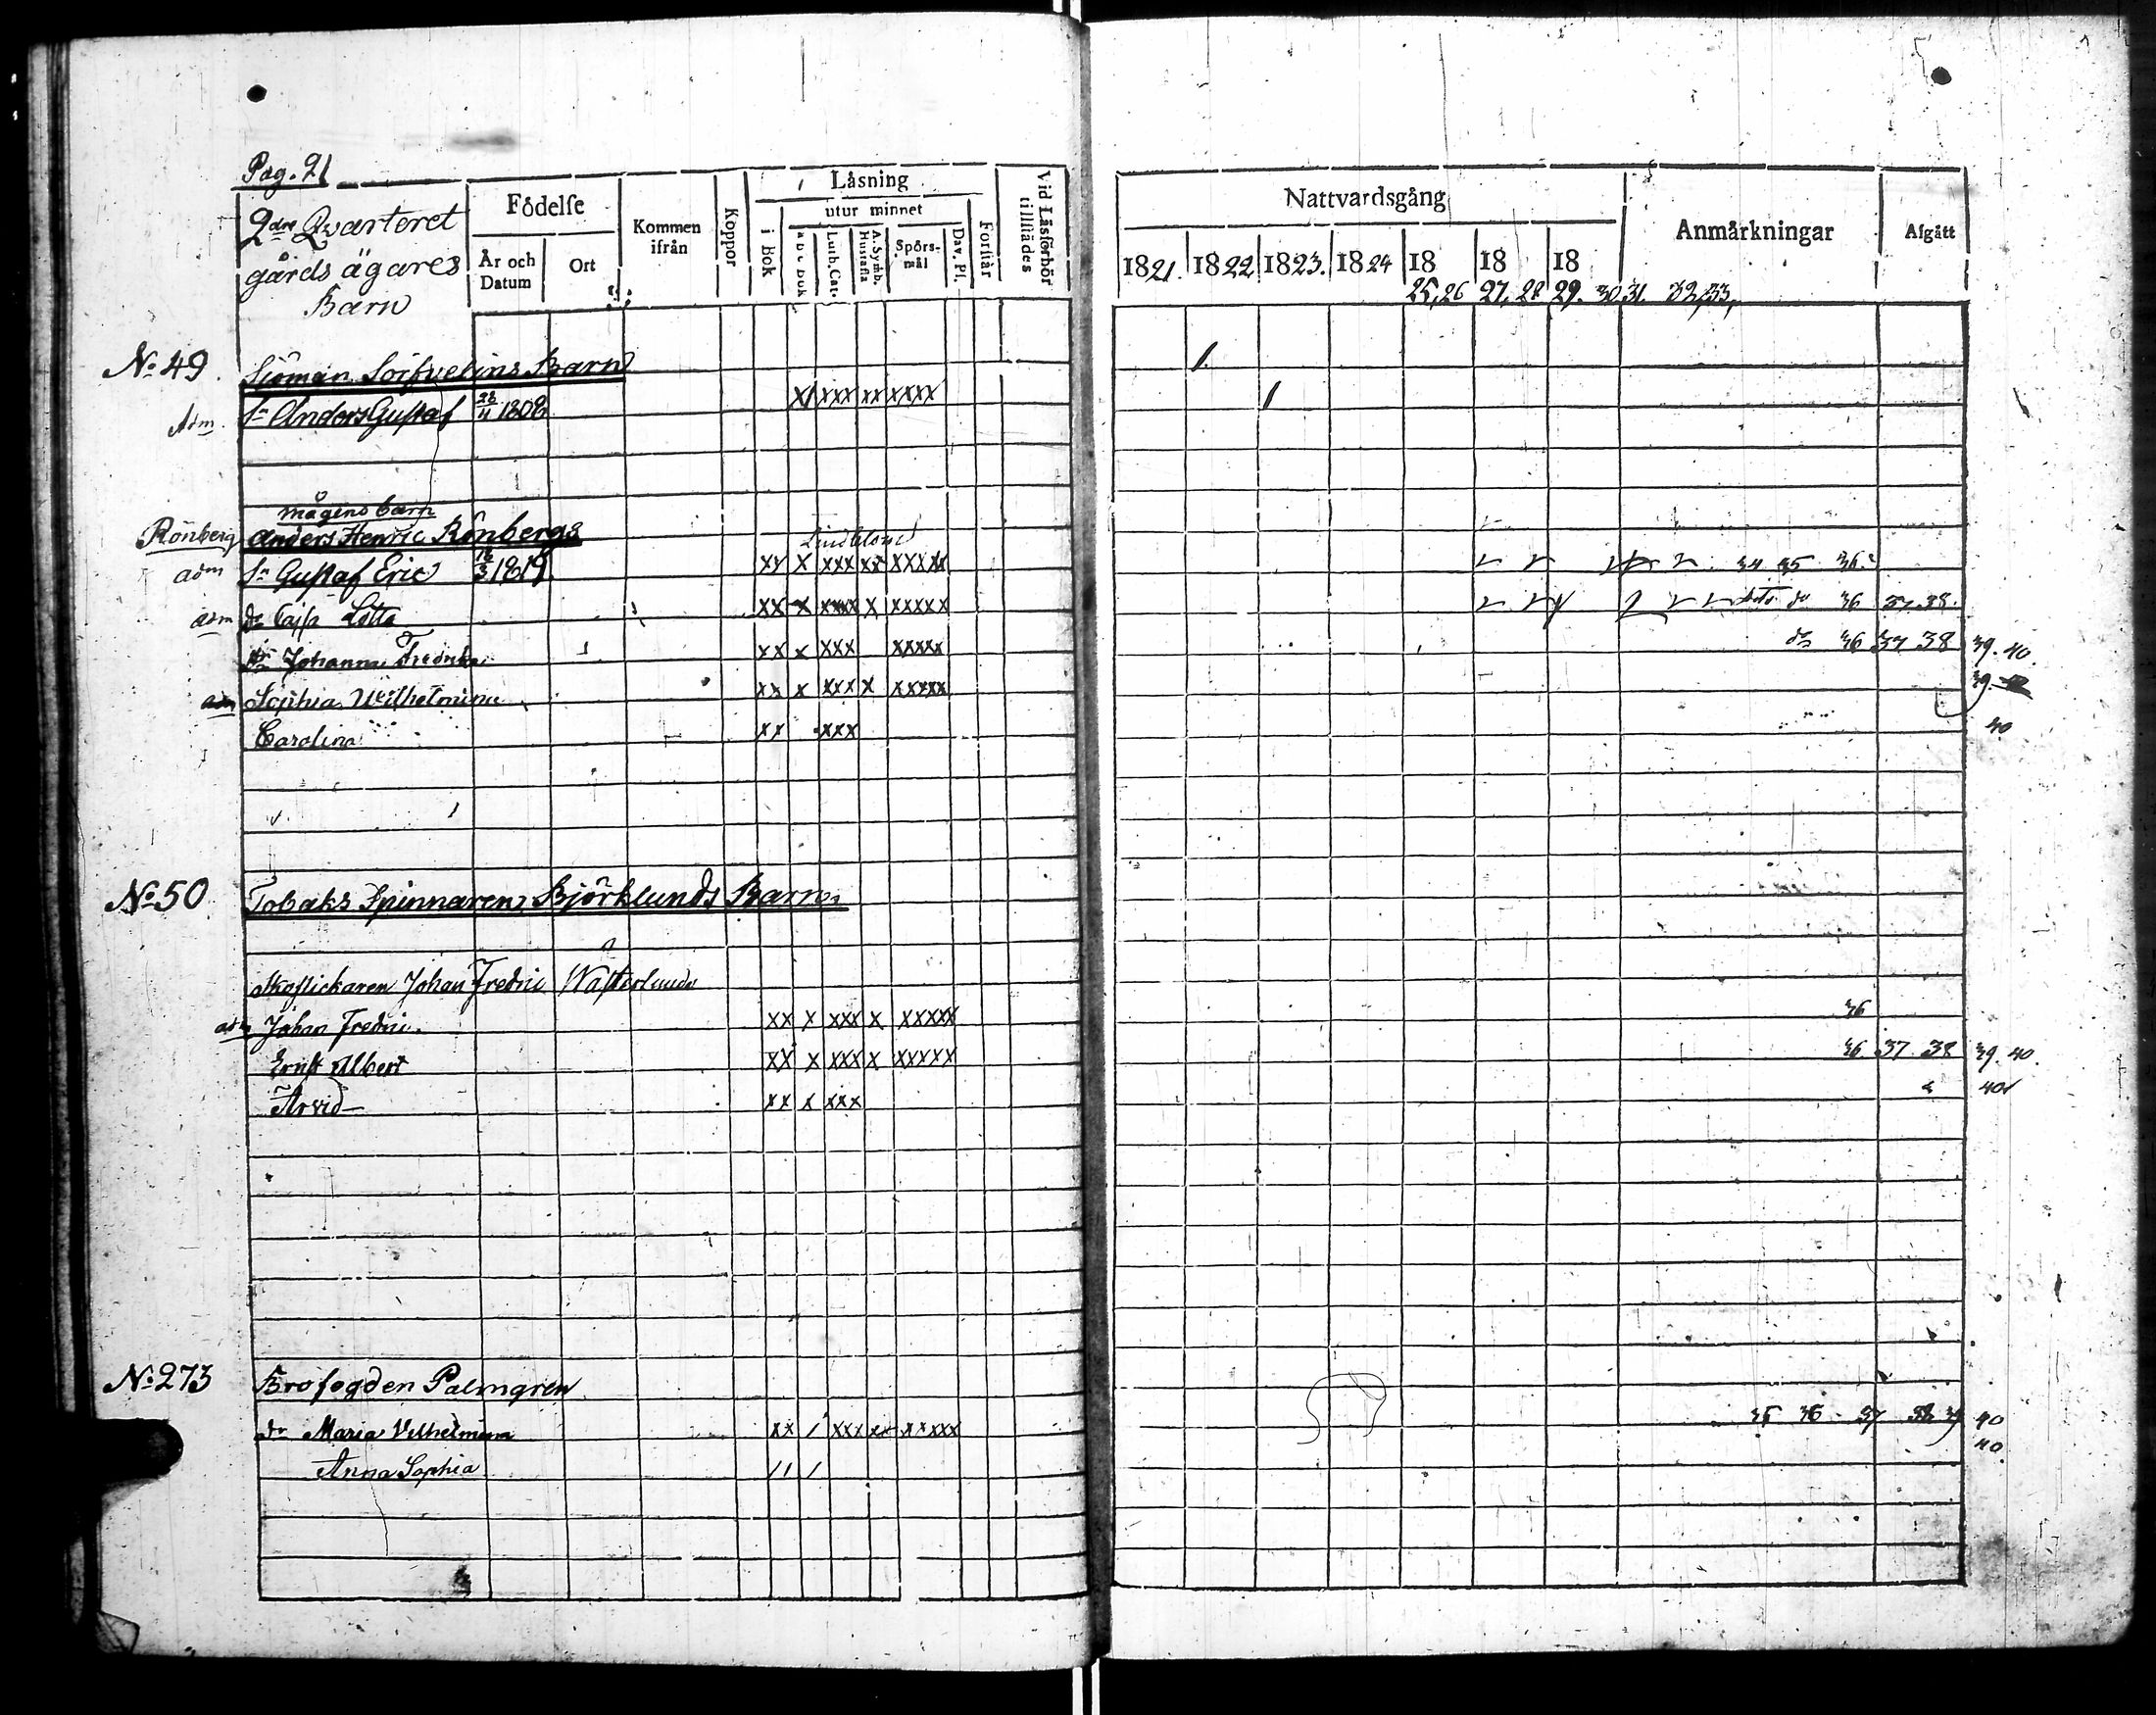 Pag. 21
2dra Qvarteret
gårds ägares
Barn
Födelse
År och Datum
Ort
Kommen ifrån
Koppor
Låsning
i bok
utur minnet
a b c bok
Luth. Cat.
A. Symb. Hustafla
Spörs-mål
Dav. Ps.
Förstår
Vid Läsförhör tillstädes
Nattvardsgång
1821. 1822 1823. 1824 18 18 18
25,26 27,28 29. 30 31. 32,33,
Anmärkningar
Afgått
No 49 Sjöman Sörfvelins Barn
Adm. Sn Anders Gustaf 28/4 1808 X/ xxx xx xxxx
mågens barn
Rönberg Anders Henric Rönbergs
adm Sn Gustaf Eric 18/3 1819 xx x xxx xx xxxxx 34 35 36
adm dr Cajsa Lotta xx x xxxx x xxxxx do 36 37.38.
dr Johanna Fredrika xx x xxx xxxxx do 36 37 38 39. 40.
adm Sophia Wilhelmina xx x xxx x xxxxx 39.
Carolina xx xxx 40
No 50 Tobaks Spinnaren Björklunds Barn
Skoflickaren Johan Fredric Wasterlunds
adm Johan Fredric xx x xxx x xxxxx 36
Ernst Albert xx x xxx x xxxxx 36 37 38 39. 40.
Arvid xx x xxx 40
No 273 Brofogden Palmgren
dr Maria Vilhelmina xx / xxx xx xxxxx 35 36 37 38 39 40
Anna Sophia // / 40